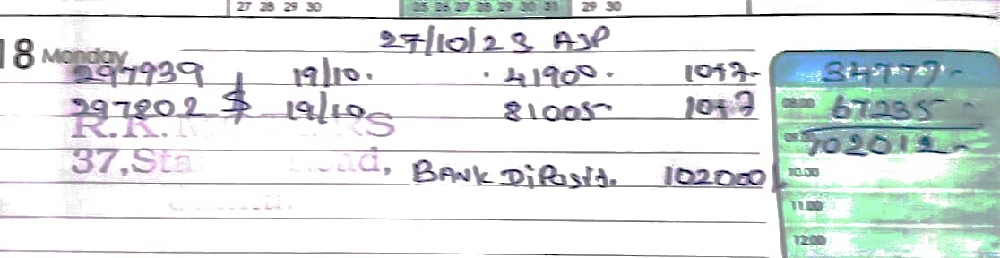 27 28 29 30 25 26 27 28 29 30 31 29 30
27/10/23 AJP
18 Monday
297939 $ 19/10. 41900. 1047- 34777-
297802 19/10 81005- 1047 08.00 67235-
R.K. RS 102012-
37, Sta ad, BANK DiPosit. 102000 10.00
11.00
12.00